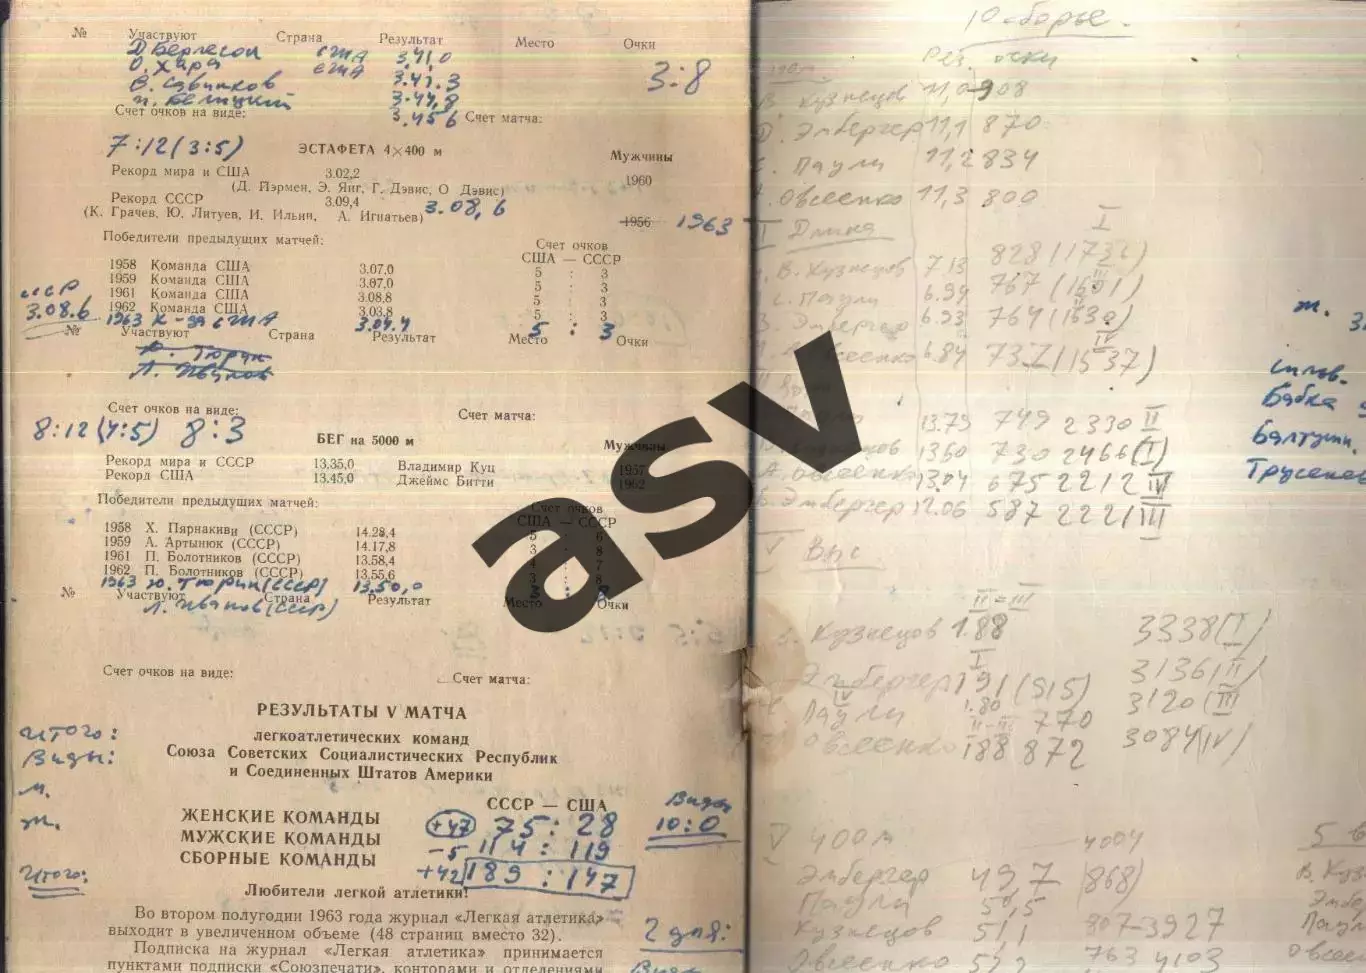 № Участвуют Страна Результат Место Очки
Д Бергесон США 3.41,0
О. Хара США 3.41.3
В. Савинков 3.44,8
И. Белицкий 3.45 6
3:8
Счет очков на виде: Счет матча:
7:12 (3:5)
ЭСТАФЕТА 4×400 м Мужчины
Рекорд мира и США 3.02,2 1960
(Д. Йэрмен, Э. Янг, Г. Дэвис, О Дэвис)
Рекорд СССР 3.09,4 3.08,6
(К. Грачев, Ю. Литуев, И. Ильин, А. Игнатьев) 1956 1963
Победители предыдущих матчей: Счет очков
США — СССР
1958 Команда США 3.07.0 5 : 3
1959 Команда США 3.07,0 5 : 3
1961 Команда США 3.08,8 5 : 3
1962 Команда США 3.03,8 5 : 3
СССР 3.08.6
1963 К-да США 3.04.4 5 : 3
№ Участвуют Страна Результат Место Очки
Ю. Тюрин
Л. Иванов
Счет очков на виде: Счет матча:
8:12 (4:5) 8:3
БЕГ на 5000 м Мужчины
Рекорд мира и СССР 13,35,0 Владимир Куц 1957
Рекорд США 13.45,0 Джеймс Битти 1962
Победители предыдущих матчей: Счет очков
США — СССР
1958 Х. Пярнакиви (СССР) 14.28,4 5 : 6
1959 А. Артынюк (СССР) 14.17,8 3 : 8
1961 П. Болотников (СССР) 13.58,4 4 : 7
1962 П. Болотников (СССР) 13.55,6 3 : 8
1963 Ю. Тюрин (СССР) 13.50,0 3 : 8
№ Участвуют Страна Результат Место Очки
Л. Иванов (СССР)
Счет очков на виде: Счет матча:
РЕЗУЛЬТАТЫ V МАТЧА
легкоатлетических команд
Союза Советских Социалистических Республик
и Соединенных Штатов Америки
Итого:
Виды:
м.
ж.
Итого:
СССР — США
ЖЕНСКИЕ КОМАНДЫ +47 75 : 28
МУЖСКИЕ КОМАНДЫ -5 114 : 119
СБОРНЫЕ КОМАНДЫ +42 189 : 147
Виды
10:0
Любители легкой атлетики!
Во втором полугодии 1963 года журнал «Легкая атлетика»
выходит в увеличенном объеме (48 страниц вместо 32).
Подписка на журнал «Легкая атлетика» принимается
пунктами подписки «Союзпечати», конторами и отделениями
2 дня:
Виды
10-борье.
Рез. очки
В. Кузнецов 11,0 908
Д. Эмбергер 11,1 870
Паули 11,2 834
Овсеенко 11,3 800
II Длина I
В. Кузнецов 7.13 828 (1736)
Паули 6.94 767 (1601) III
Эмбергер 6.93 764 (1634)
Овсеенко 6.84 737 (1537) IV
Паули 13.79 749 2330 II
Кузнецов 13.50 730 2466 (I)
А. Овсеенко 13.04 675 2212 IV
Эмбергер 12.06 587 2221 III
Выс
II-III
Кузнецов 1.88 3338 (I)
I
Эмбергер 191 (915) 3136 (II)
IV
Паули 1.80 770 3120 (III)
II-III
Овсеенко 188 872 3084 (IV)
V 400м
Эмбергер 49,7 (868) 4004
Паули 50,5
Кузнецов 51,1 807-3927
Овсеенко 52,2 763 4103
ж.
Бябка
Балтушн.
Трусенев
5 в
В. Кузне
Эмбер
Паул
Овсее
asv